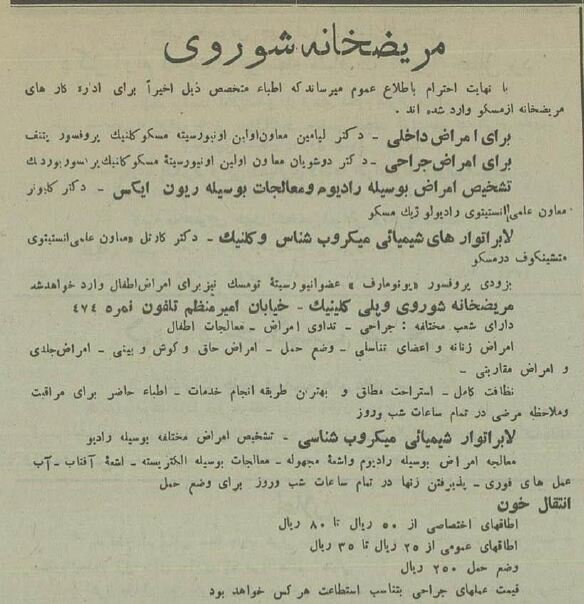 مریضخانه شوروی
با نهایت احترام باطلاع عموم میرساند که اطباء متخصص ذیل اخیراً برای اداره کار های
مریضخانه از مسکو وارد شده اند .
برای امراض داخلی – دکتر لیامین معاون اولین اونیورسیته مسکو کلنیك پروفسور پتنف
برای امراض جراحی – دکتر دوشویان معاون اولین اونیورسیتهٔ مسکو کلنیك پرفسور بوردنك
تشخیص امراض بوسیله رادیوم ومعالجات بوسیله ریون ایکس – دکتر کاپونر
معاون علمی انستیتوی رادیولوژیك مسکو
لابراتوار های شیمیائی میکروب شناس وکلنیك – دکتر کارتل «معاون علمی انستیتوی
متشینکوف درمسکو
بزودی پروفسور «یونومارف» عضو انیورسیتهٔ تومسك نیز برای امراض اطفال وارد خواهد شد
مریضخانه شوروی وپلی کلینیك – خیابان امیر منظم تلفون نمره ٤٧٤
دارای شعب مختلفه : جراحی – تداوی امراض – معالجات اطفال
امراض زنانه و اعضای تناسلی – وضع حمل – امراض حلق و گوش و بینی – امراض جلدی
و امراض مقاربتی –
نظافت کامل – استراحت مطلق و بهترین طریقه انجام خدمات – اطباء حاضر برای مراقبت
وملاحظه مرضی در تمام ساعات شب وروز
لابراتوار شیمیائی میکروب شناسی – تشخیص امراض مختلفه بوسیله رادیو
معالجه امراض بوسیله رادیوم واشعهٔ مجهوله – معالجات بوسیله الکتریسته – اشعهٔ آفتاب – آب
عمل های فوری – پذیرفتن زنها در تمام ساعات شب وروز برای وضع حمل
انتقال خون
اطاقهای اختصاصی از ٥٠ ریال تا ٨٠ ریال
اطاقهای عمومی از ٢٥ ریال تا ٣٥ ریال
وضع حمل ٢٥٠ ریال
قیمت عملهای جراحی بتناسب استطاعت هر کس خواهد بود